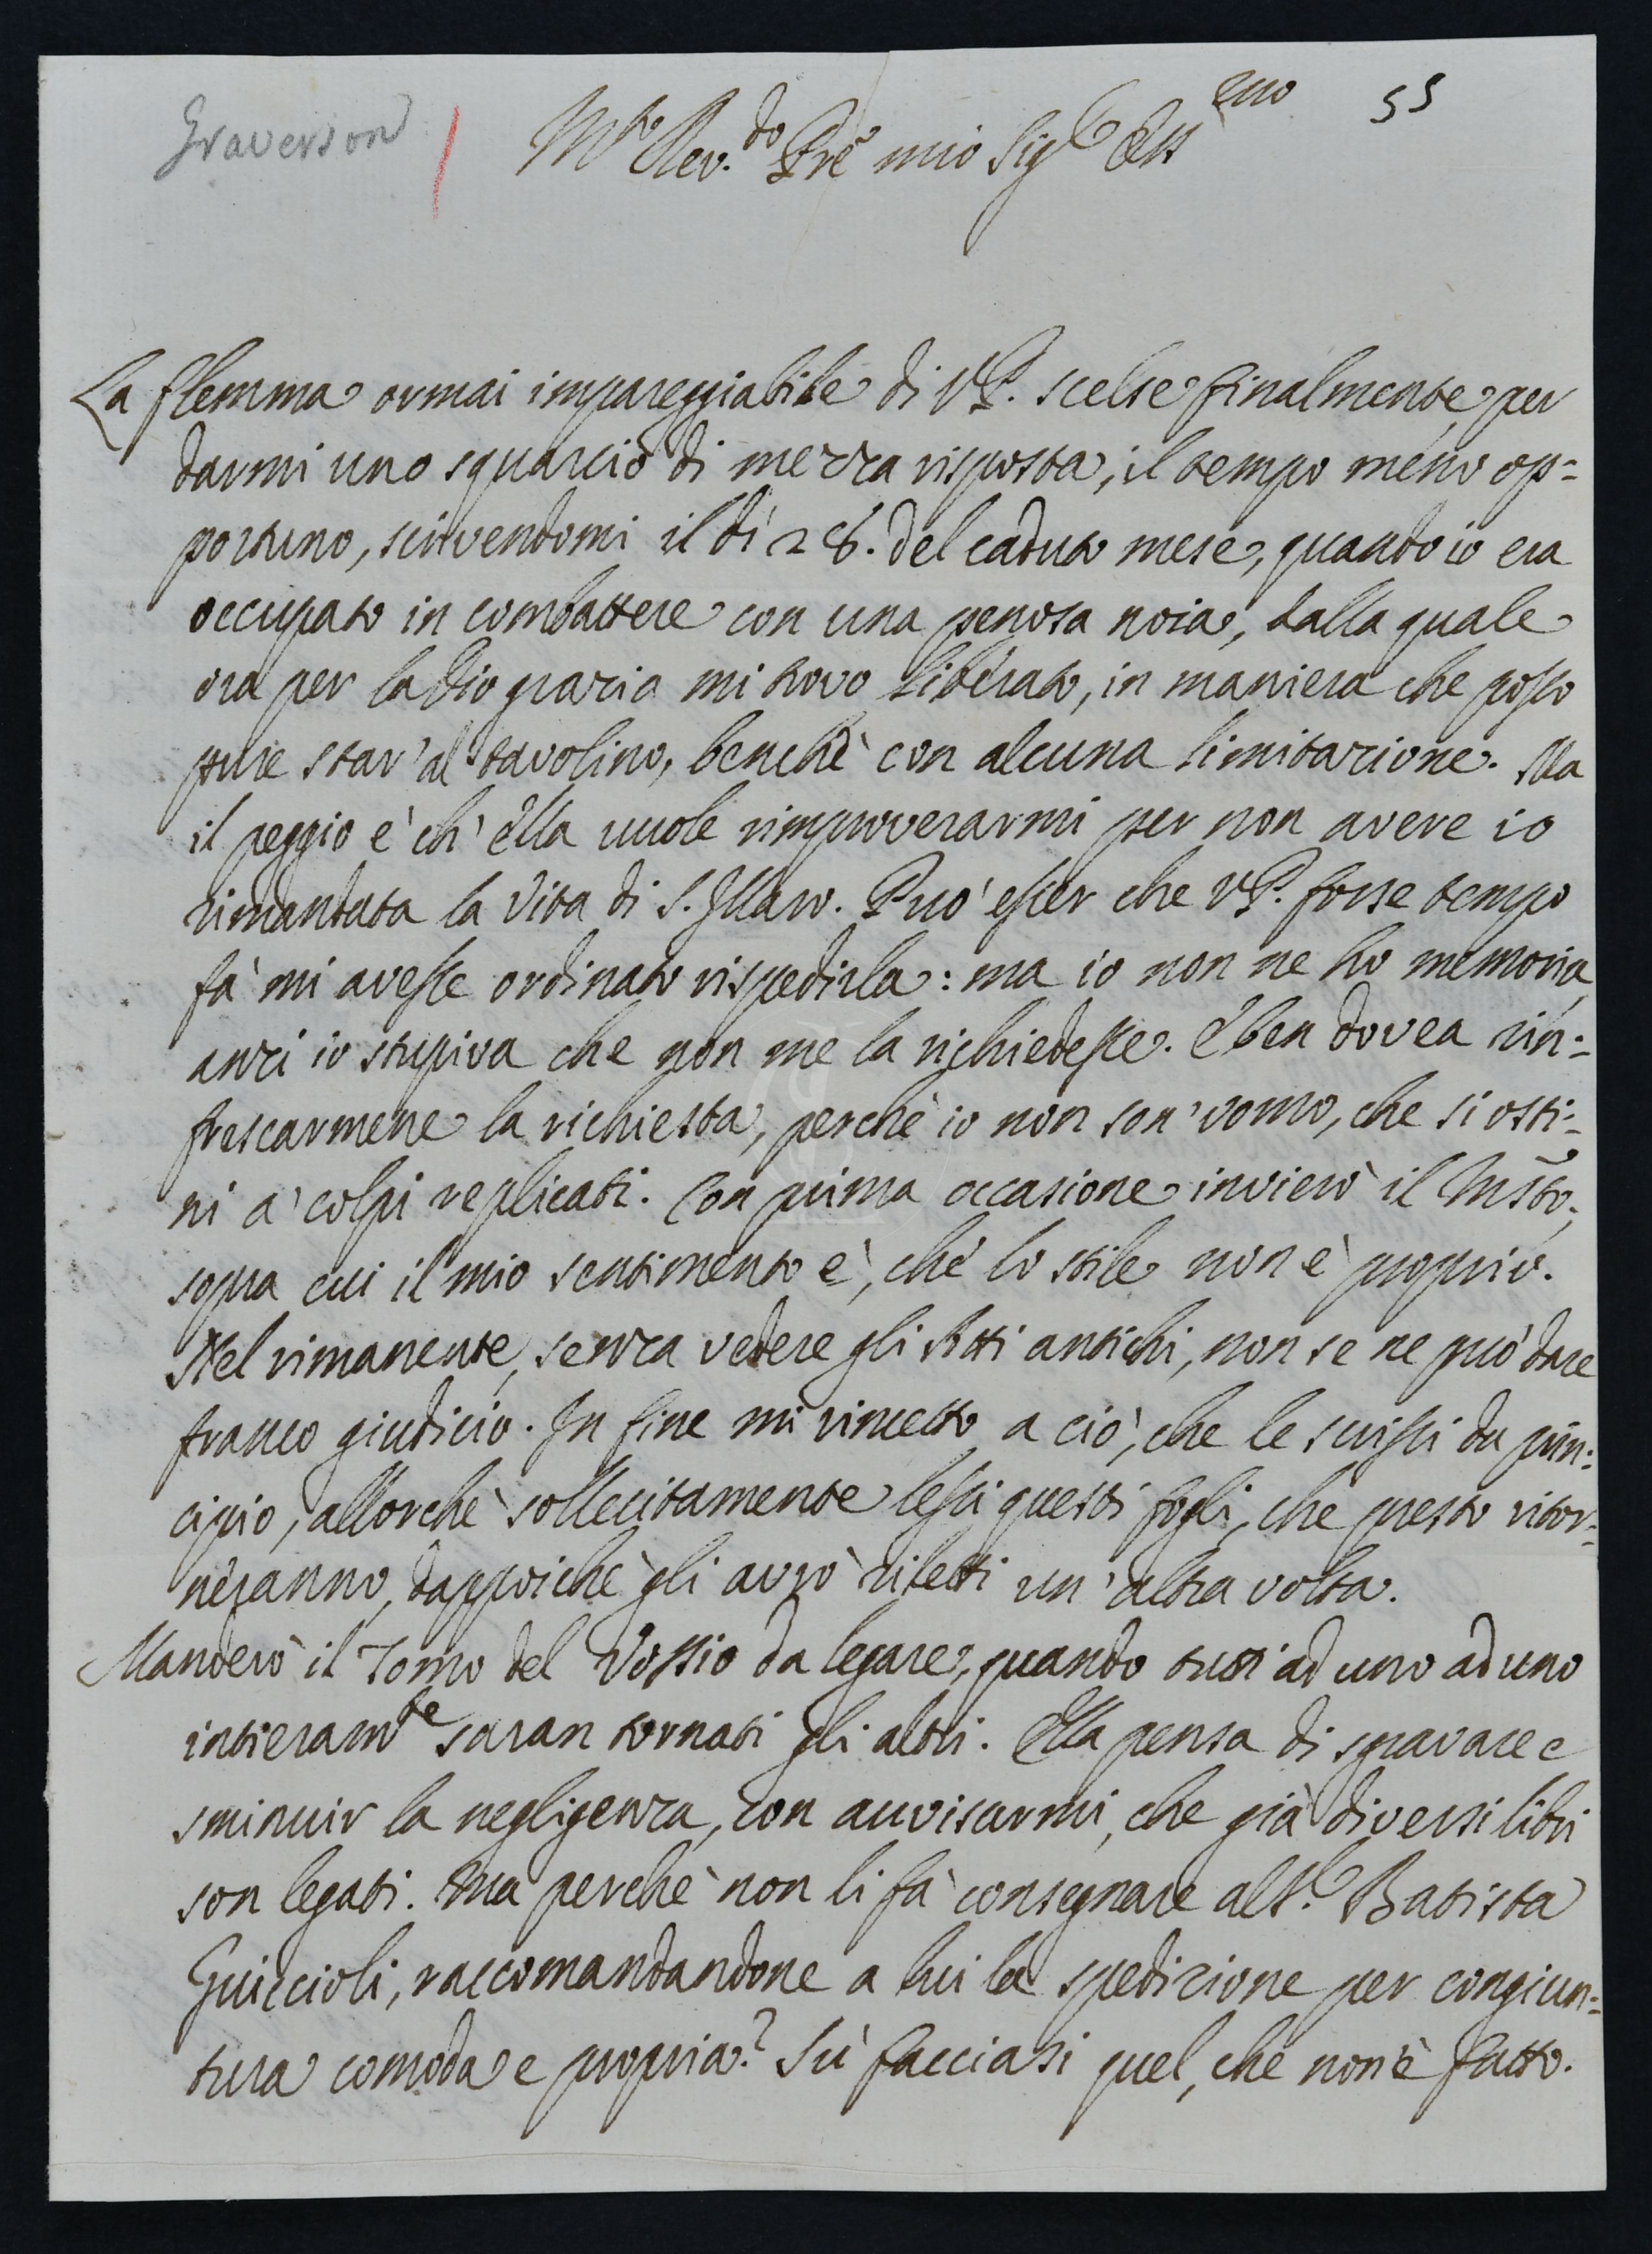 Graverson
55
M.to Rev.do Pre mio Sig.e Oss.mo
La flemma ormai impareggiabile di V.P. scelse finalmente, per
darmi uno squarcio di mezza risposta, il tempo meno op=
portuno, scrivendomi il dì 28. del caduto mese, quando io era
occupato in combattere con una penosa noia, dalla quale
ora per la Dio grazia mi trovo liberato, in maniera che posso
pure star' al tavolino, benchè con alcuna limitazione. Ma
il peggio è ch' ella vuole rimproverarmi per non avere io
rimandata la Vita di S. Illaro. Può esser che V.P. forse tempo
fà mi avesse ordinato rispedirla: ma io non ne ho memoria,
anzi io stupiva che non me la richiedesse. E ben dovea rin=
frescarmene la richiesta, perchè io non son' uomo, che si osti=
ni a' colpi replicati. Con prima occasione invierò il Msto;
sopra cui il mio sentimento è, che lo stile non è proprio.
Nel rimanente, senza vedere gli Atti antichi, non se ne può dare
franco giudicio. In fine mi rimetto a ciò, che le scrissi da prin=
cipio, allorchè sollecitamente lessi questi fogli, che presto ritor=
neranno, dappoichè gli avrò riletti un' altra volta.
Manderò il Tomo del Vossio da legare, quando tutti ad uno ad uno
intieramte saran tornati gli altri. Ella pensa di sgravare e
sminuir la negligenza, con avvisarmi, che già diversi libri
son legati. Ma perchè non li fà consegnare al S.r Batista
Guiccioli, raccomandandone a lui la spedizione per congiun=
tura comoda e propria? Sù facciasi quel, che non è fatto.